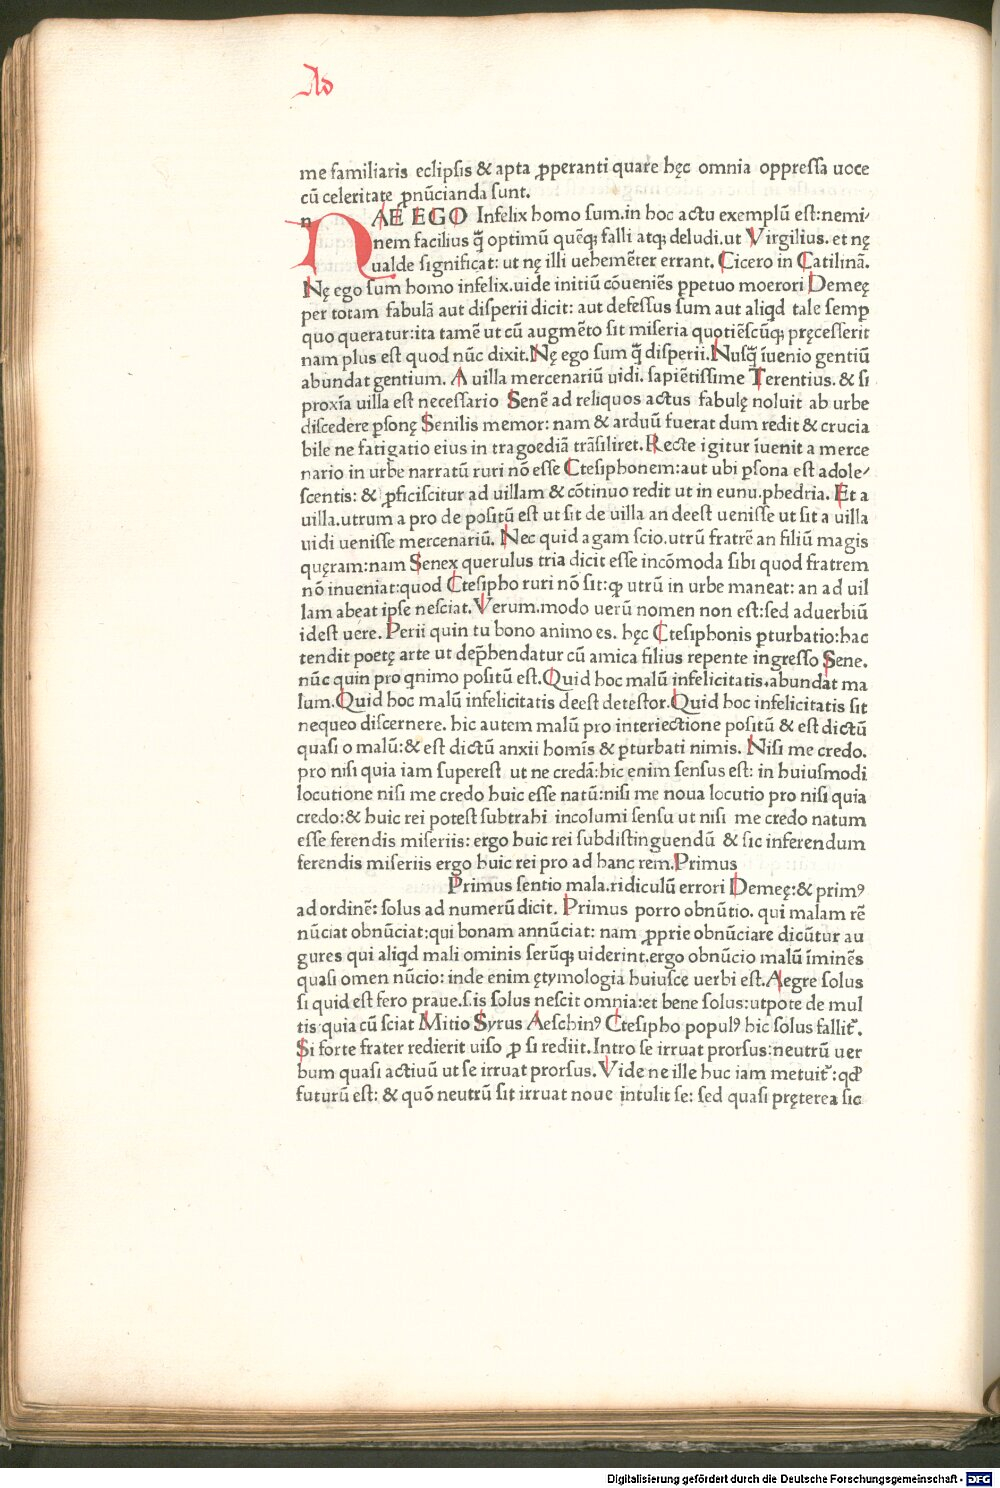 Ad
me familiaris eclipsis & apta ꝓperanti quare hęc omnia oppressa uoce
cū celeritate ꝓnūcianda sunt.
n NAE EGO Infelix homo sum.in hoc actu exemplū est:nemi-
nem facilius q̄ optimū quēq; falli atq; deludi.ut Virgilius. et nę
ualde significat: ut nę illi uehemēter errant. Cicero in Catilinā.
Nę ego sum homo infelix.uide initiū cōueniēs ꝑpetuo moerori Demeę
per totam fabulā aut disperii dicit: aut defessus sum aut aliqd tale semꝑ
quo queratur:ita tamē ut cū augmēto sit miseria quotiēscūq; pręcesserit
nam plus est quod nūc dixit.Nę ego sum q̄ disperii.Nusq̄ īuenio gentiū
abundat gentium. A uilla mercenariū uidi. sapiētissime Terentius. & si
proxīa uilla est necessario Senē ad reliquos actus fabulę noluit ab urbe
discedere ꝑsonę Senilis memor: nam & arduū fuerat dum redit & crucia
bile ne fatigatio eius in tragoediā trāsiliret.Recte igitur īuenit a merce
nario in urbe narratū ruri nō esse Ctesiphonem:aut ubi ꝑsona est adole-
scentis: & ꝓficiscitur ad uillam & cōtinuo redit ut in eunu.phedria. Et a
uilla.utrum a pro de positū est ut sit de uilla an deest uenisse ut sit a uilla
uidi uenisse mercenariū. Nec quid agam scio.utrū fratrē an filiū magis
quęram:nam Senex querulus tria dicit esse incōmoda sibi quod fratrem
nō inueniat:quod Ctesipho ruri nō sit:qꝫ utrū in urbe maneat: an ad uil
lam abeat ipse nesciat.Verum.modo uerū nomen non est:sed aduerbiū
idest uere. Perii quin tu bono animo es. hęc Ctesiphonis ꝑturbatio:hac
tendit poetę arte ut dep̄hendatur cū amica filius repente ingresso Sene.
nūc quin pro qnimo positū est.Quid hoc malū infelicitatis.abundat ma
lum.Quid hoc malū infelicitatis deest detestor.Quid hoc infelicitatis sit
nequeo discernere. hic autem malū pro interiectione positū & est dictū
quasi o malū:& est dictū anxii homīs & ꝑturbati nimis. Nisi me credo.
pro nisi quia iam superest ut ne credā:hic enim sensus est: in huiusmodi
locutione nisi me credo huic esse natū:nisi me noua locutio pro nisi quia
credo:& huic rei potest subtrahi incolumi sensu ut nisi me credo natum
esse ferendis miseriis: ergo huic rei subdistinguendū & sic inferendum
ferendis miseriis ergo huic rei pro ad hanc rem.Primus
Primus sentio mala.ridiculū errori Demeę:& primꝰ
ad ordinē: solus ad numerū dicit. Primus porro obnūtio. qui malam rē
nūciat obnūciat:qui bonam annūciat: nam ꝓprie obnūciare dicūtur au
gures qui aliqd mali ominis serūq; uiderint.ergo obnūcio malū īminēs
quasi omen nūcio: inde enim ętymologia huiusce uerbi est.Aegre solus
si quid est fero praue.s.is solus nescit omnia:et bene solus:utpote de mul
tis quia cū sciat Mitio Syrus Aeschinꝰ Ctesipho populꝰ hic solus fallit̄.
Si forte frater redierit uiso ꝓ si rediit.Intro se irruat prorsus:neutrū uer
bum quasi actiuū ut se irruat prorsus.Vide ne ille huc iam metuit̄:qd̄
futurū est: & quō neutrū sit irruat noue intulit se: sed quasi pręterea sic
Digitalisierung gefördert durch die Deutsche Forschungsgemeinschaft - DFG